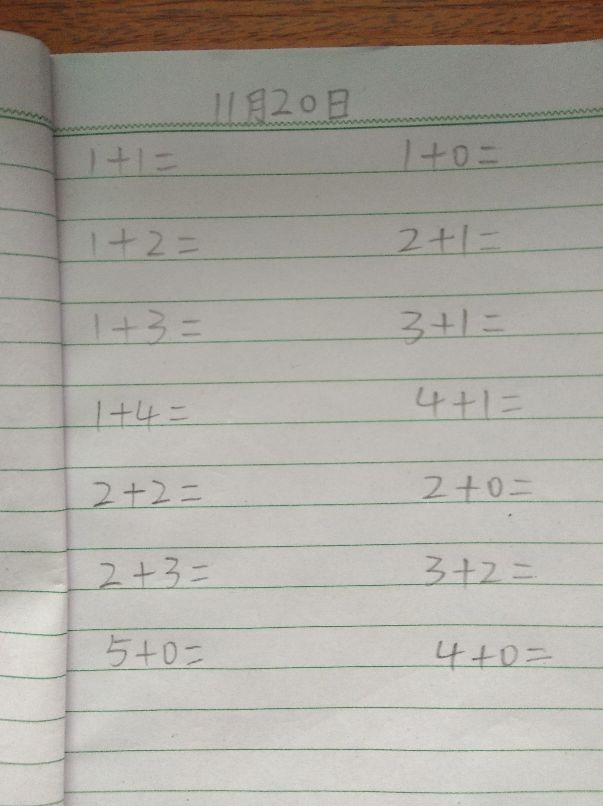 11月20日
1+1= 1+0=
1+2= 2+1=
1+3= 3+1=
1+4= 4+1=
2+2= 2+0=
2+3= 3+2=
5+0= 4+0=